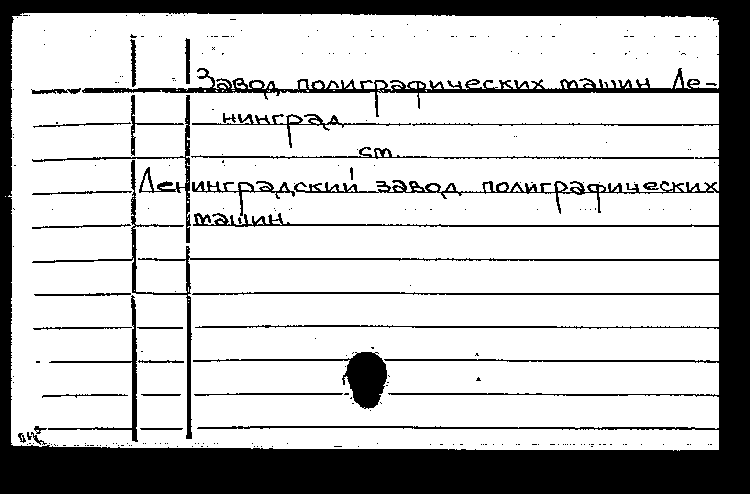 Завод полиграфических машин Ле-
нинград
см.
Ленинградский завод полиграфических
машин.